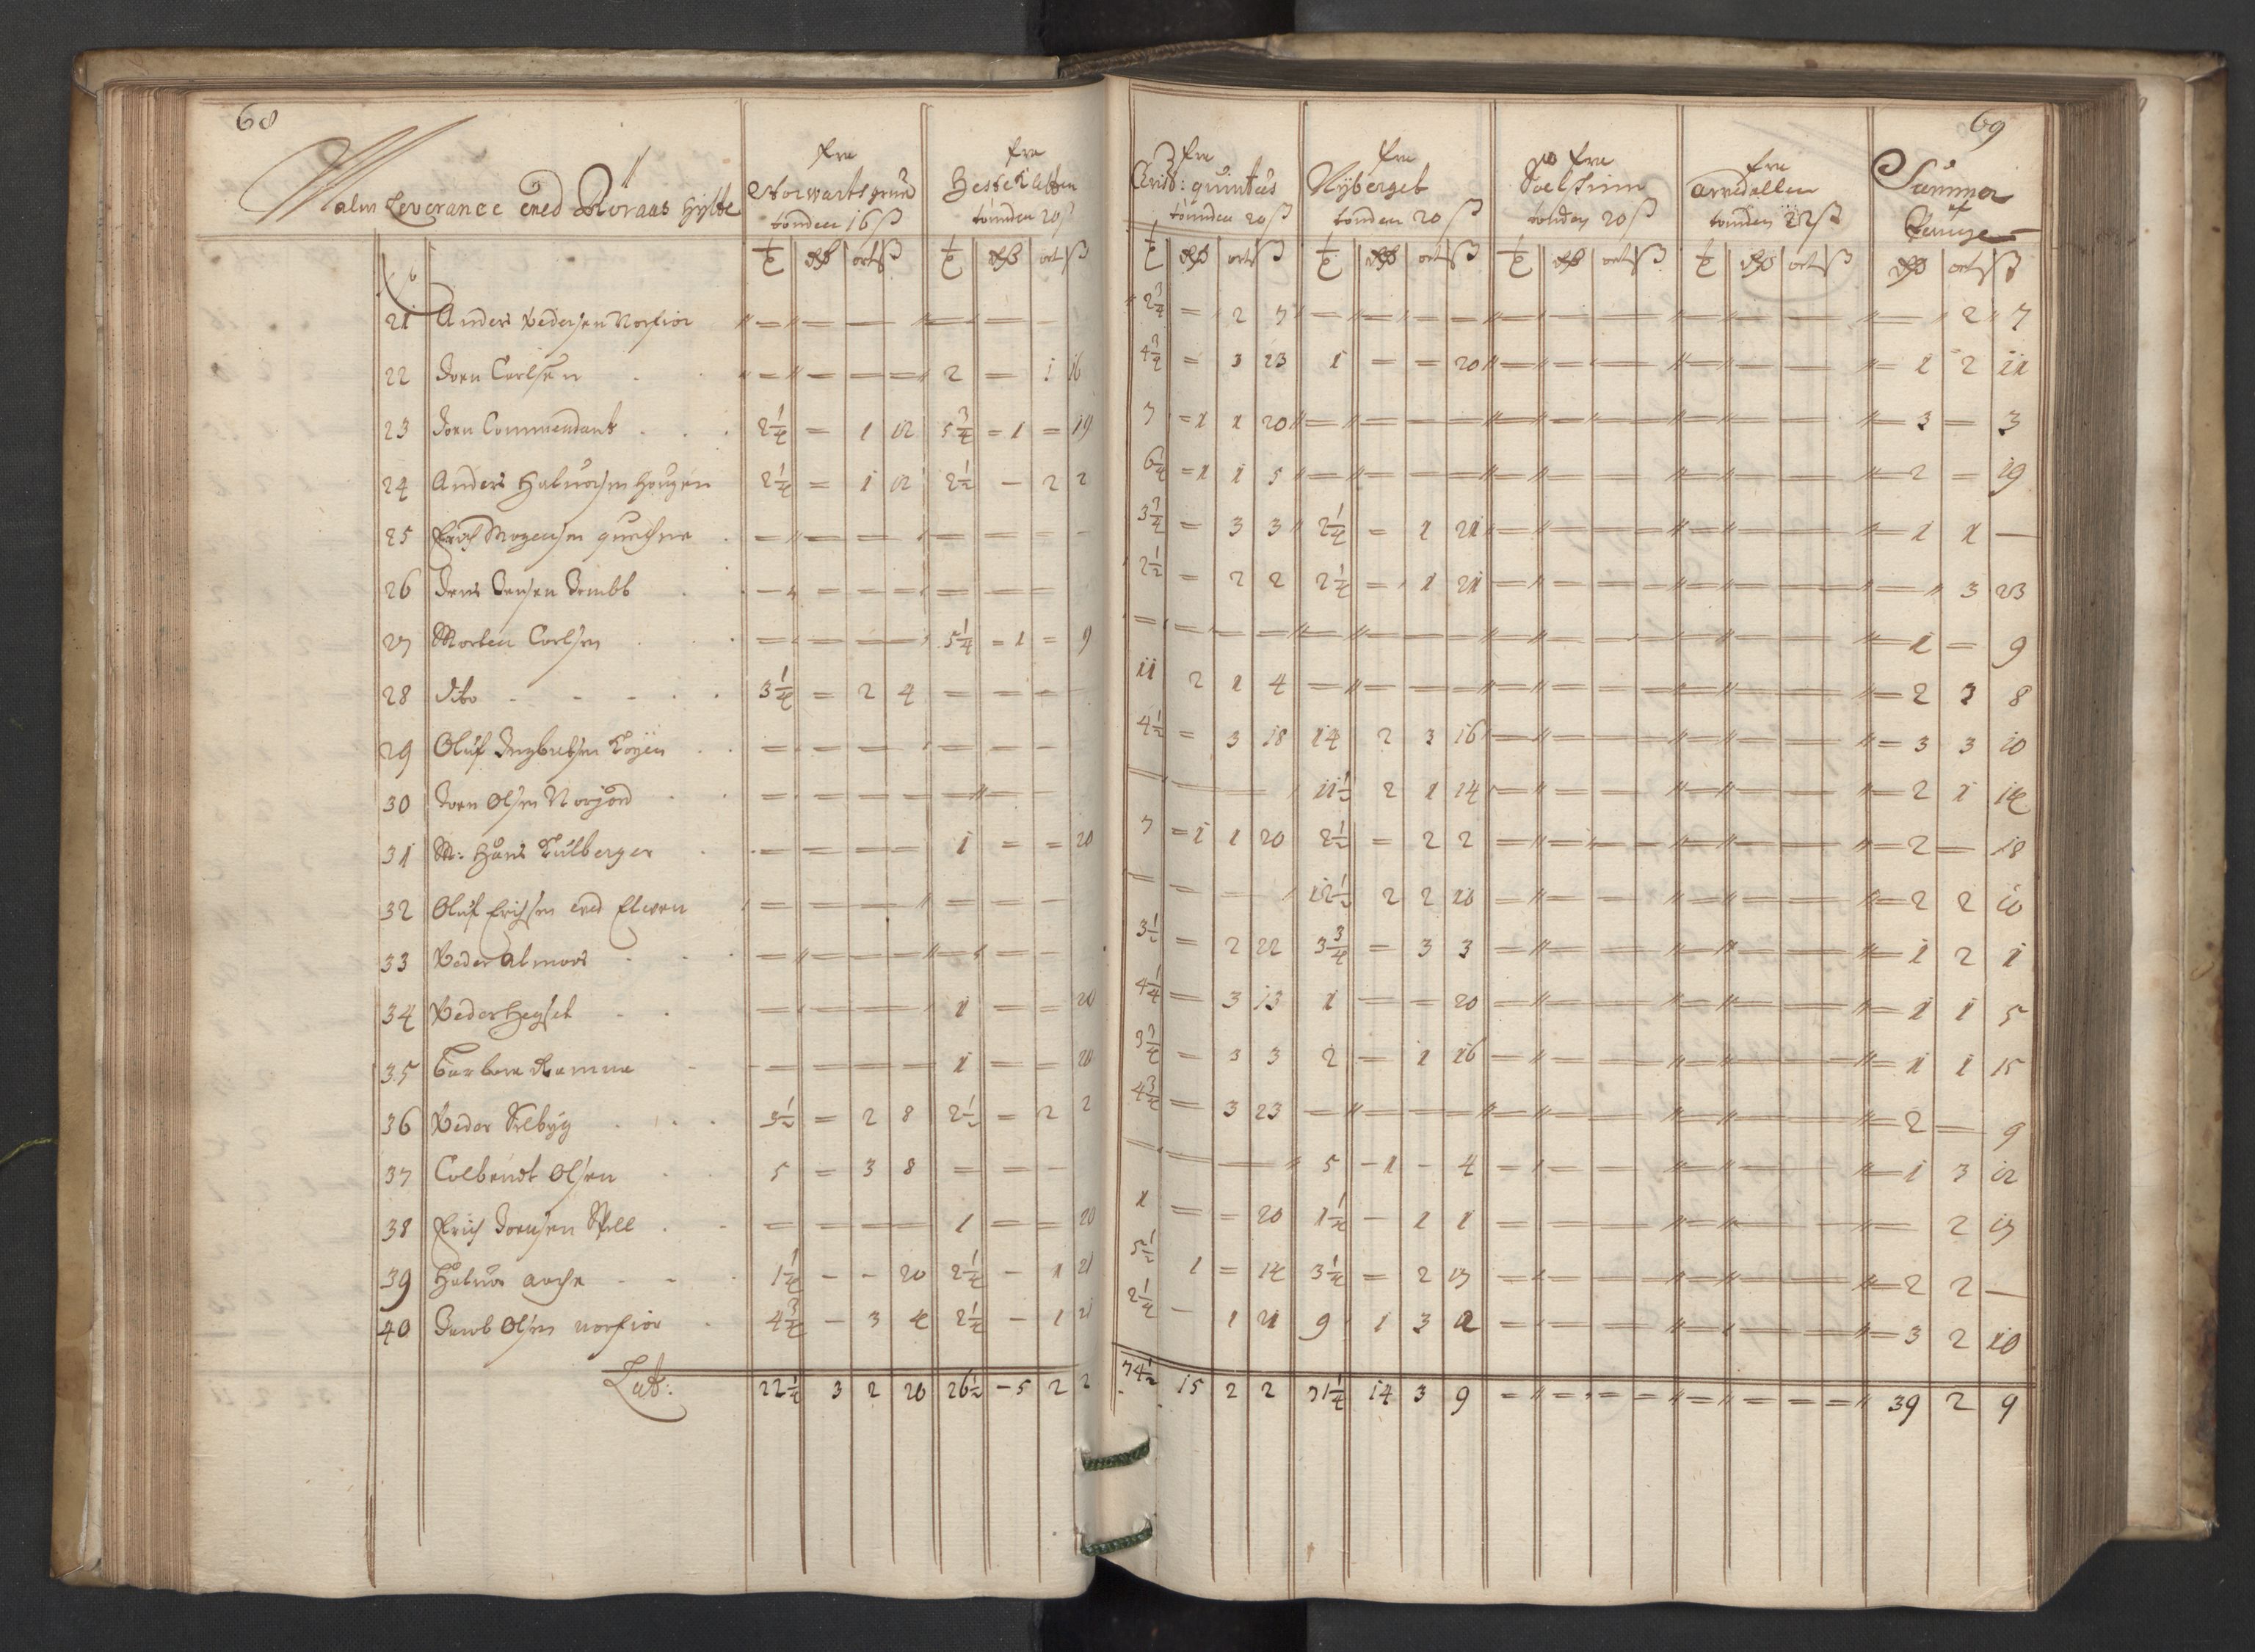 68
69
Malm Leverance ved Röraas Hytte
fra Norwartsgrufu tönden 16 ß
fra Hesteklätten tönden 20 ß
fra Christ: quintus tönden 20 ß
fra Nÿberget tönden 20 ß
fra tönden 20 ß
fra Arvedallen tönden 22 ß
Summa af Penge
ort ß ort ß ort ß ort ß ort ß ort ß ort ß
21 Anders Pedersen Norfior = = = = = = = 2¾ = 2 7 = = = = = = = = = = = = = 2 7
22 Joen Carlsen = = = = 2 = 1 16 4¾ = 3 23 1 = = 20 = = = = = = = = 1 2 11
23 Joen Commendant 2¼ = 1 12 5¾ = 1 = 19 7 = 1 1 20 = = = = = = = = = = = = 3 = 3
24 Anders Haluorsen Hougen 2¼ = 1 12 2½ = 2 2 6¼ = 1 1 5 = = = = = = = = = = = = 2 = 19
25 Erich Mogensen quichne = = = = = = = = 3¾ = 3 3 2¼ = 1 21 = = = = = = = = 1 1 —
26 Jens Jensen = = = = = = = 2½ = 2 2 2¼ = 1 21 = = = = = = = = = 3 23
27 Morten Carlsen = = = = 5¼ = 1 = 9 = = = = = = = = = = = = = = = = 1 = 9
28 dito 3¼ = 2 4 = = = = 11 2 1 4 = = = = = = = = = = = = 2 3 8
29 Oluf Ingbretsen Koÿen = = = = = = = 4½ = 3 18 14 2 3 16 = = = = = = = = 3 3 10
30 Joen Olsen Norjord = = = = = = = = = = = 11½ 2 1 14 = = = = = = = = 2 1 14
31 M: Hans Külberger = = = = 1 = = 20 7 = 1 1 20 2½ = 2 2 = = = = = = = = 2 = 18
32 Oluf Erichsen ved Elwen = = = = = = = = = = = 12½ 2 2 10 = = = = = = = = 2 2 10
33 Peder Almoes = = = = = = = 3½ = 2 22 3¾ = 3 3 = = = = = = = = 1 2 1
34 Peder Hegset = = = = 1 = = 20 4¼ = 3 13 1 = = 20 = = = = = = = = 1 1 5
35 Barbara Ramme = = = = 1 = = 20 3¾ = 3 3 2 = 1 16 = = = = = = = = 1 1 15
36 Peder Selbÿg 3½ = 2 8 2½ = 2 2 4¾ = 3 23 = = = = = = = = = = = = 2 = 9
37 Colbendt Olsen 5 = 3 8 = = = = = = = 5 = 1 = 4 = = = = = = = = 1 3 12
38 Erich Joensen Spell = = = = 1 = = 20 1 = = 20 1¼ = 1 1 = = = = = = = = = 2 17
39 Haluor Aasen 1¼ = = 20 2¼ = 1 21 5½ 1 = 14 3¼ = 2 17 = = = = = = = = 2 2 —
40 Jacob Olsen norfior 4¾ = 3 4 2¼ = 1 21 2¼ = 1 21 9 1 3 12 = = = = = = = = 3 2 10
Lat: 22¼ 3 2 20 26½ = 5 2 2 74½ 15 2 2 71¼ 14 3 9 = = = = = = = = 39 2 9